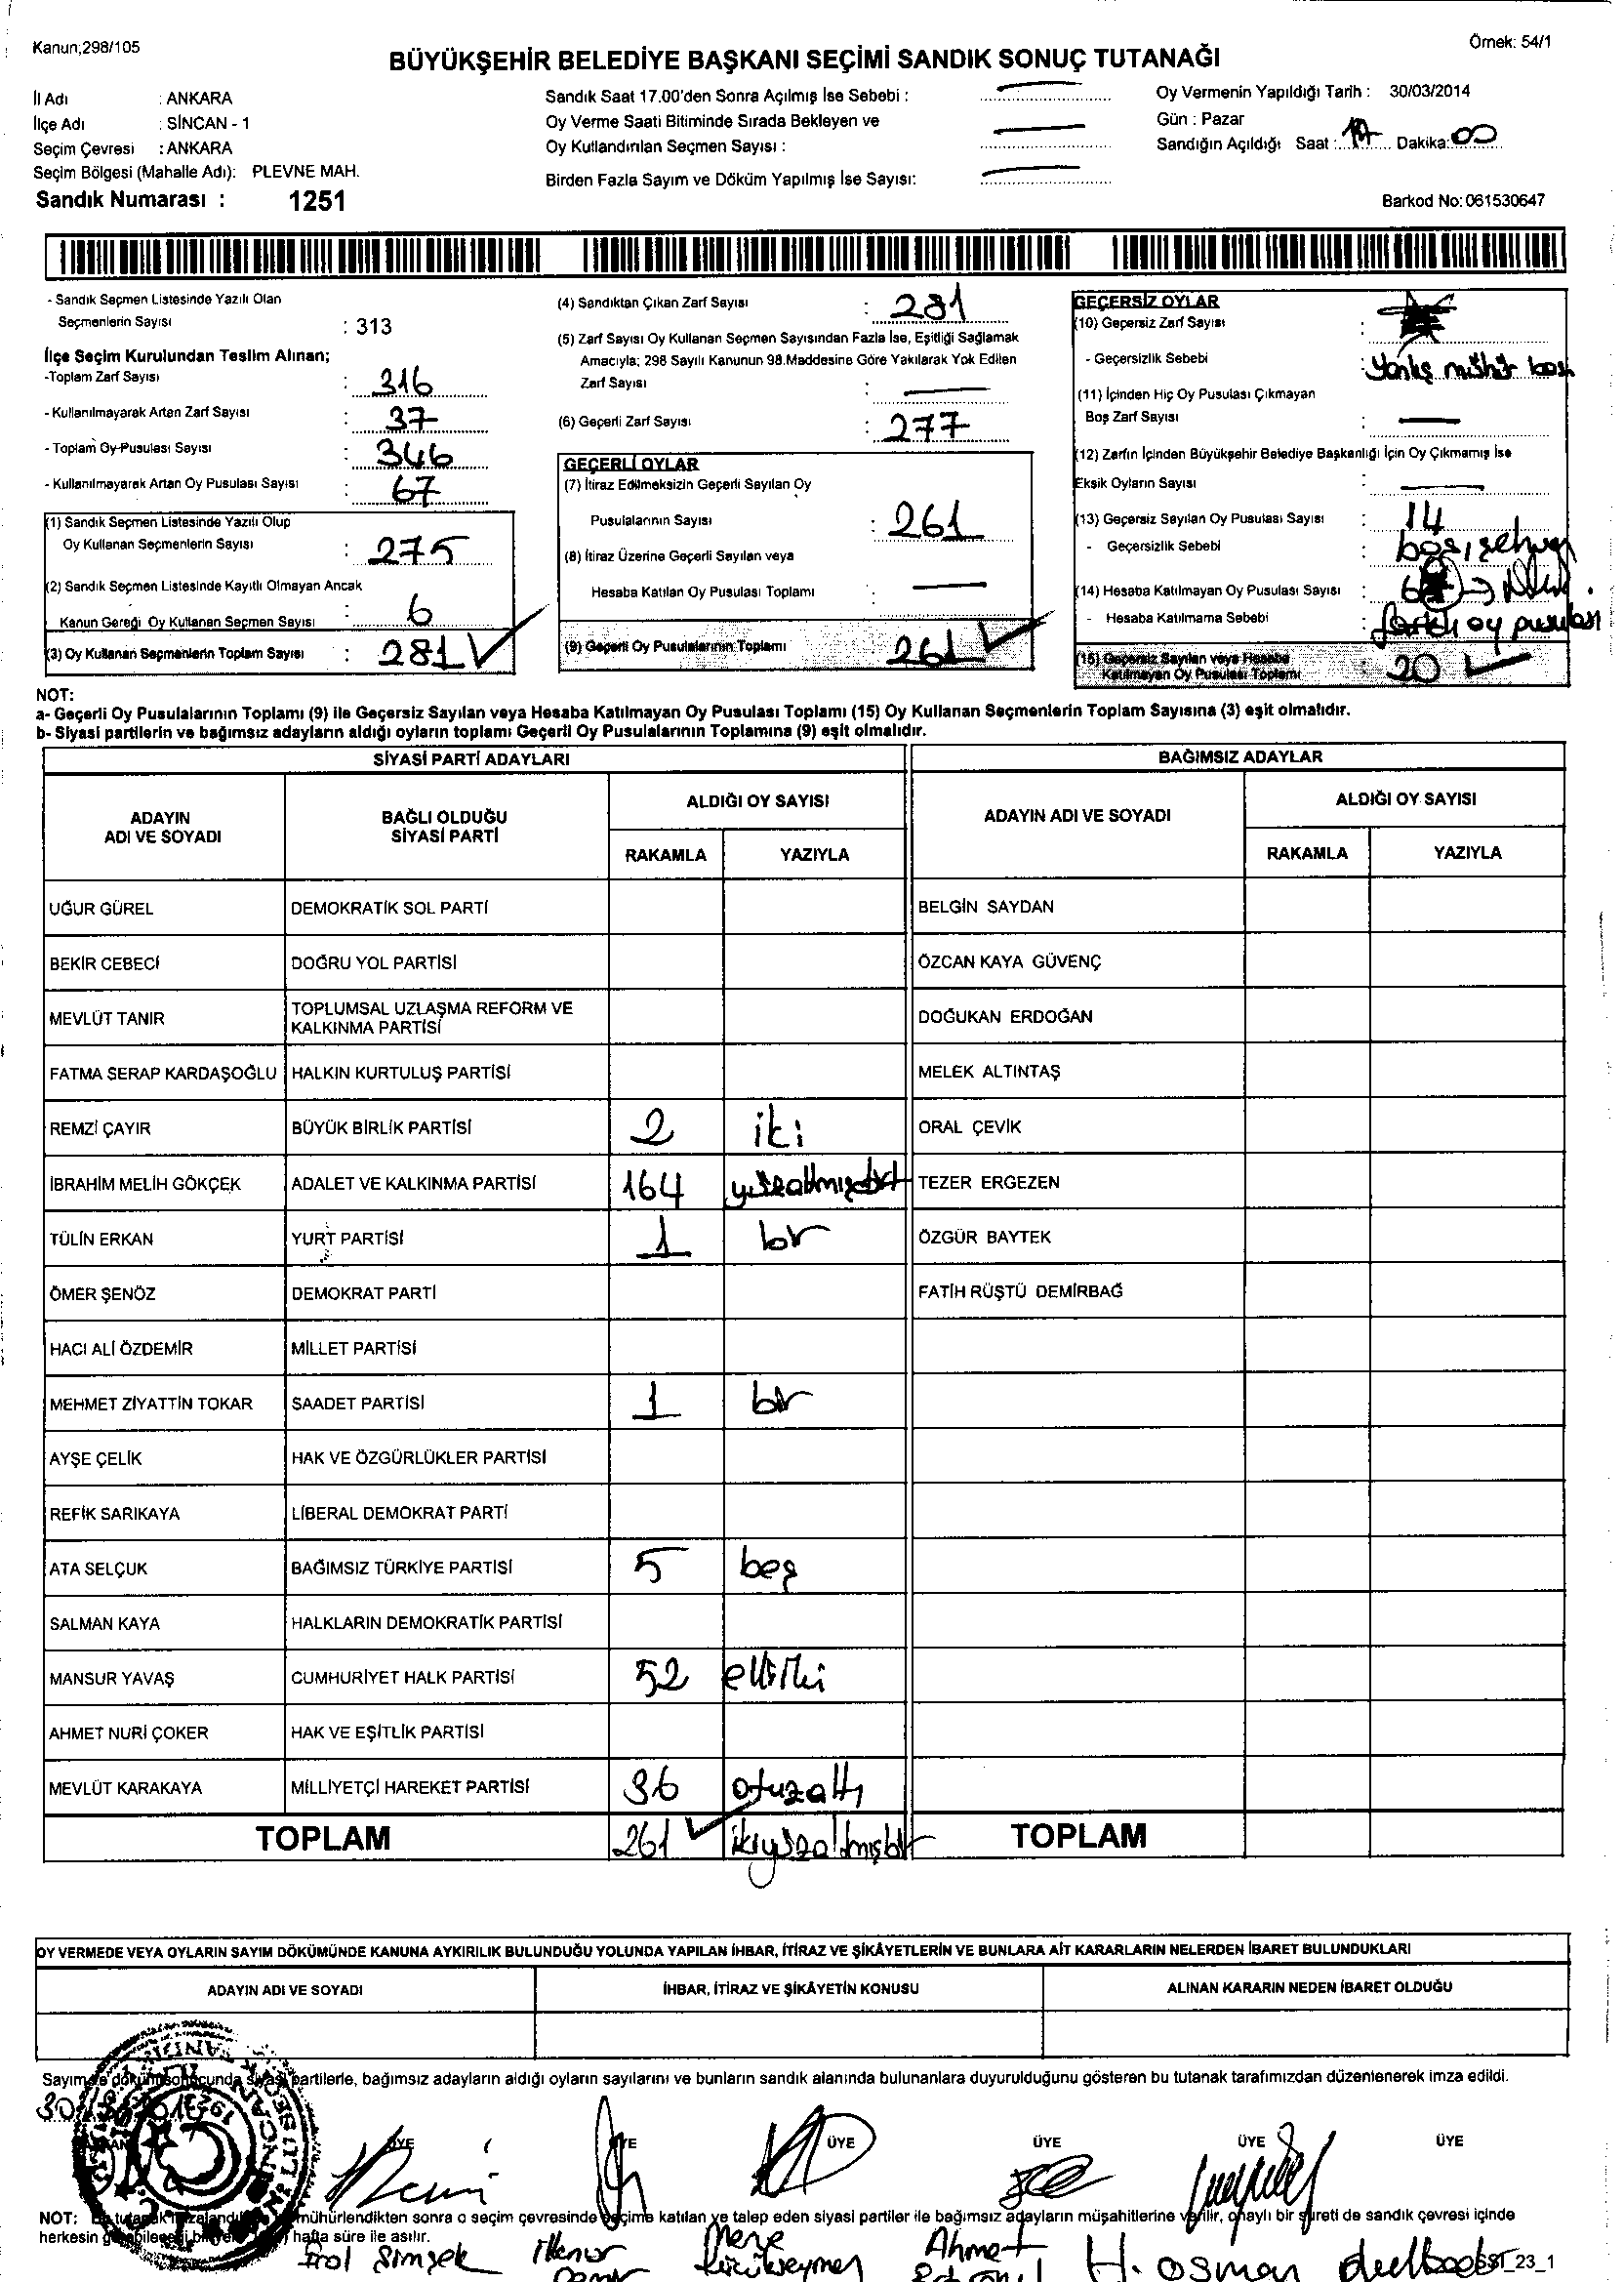 Kanun;298/105
Örnek: 54/1
BÜYÜKŞEHİR BELEDİYE BAŞKANI SEÇİMİ SANDIK SONUÇ TUTANAĞI
İl Adı : ANKARA
İlçe Adı : SİNCAN - 1
Seçim Çevresi : ANKARA
Seçim Bölgesi (Mahalle Adı): PLEVNE MAH.
Sandık Numarası : 1251
Sandık Saat 17.00'den Sonra Açılmış İse Sebebi :
Oy Verme Saati Bitiminde Sırada Bekleyen ve
Oy Kullandırılan Seçmen Sayısı :
Birden Fazla Sayım ve Döküm Yapılmış İse Sayısı:
Oy Vermenin Yapıldığı Tarih : 30/03/2014
Gün : Pazar
Sandığın Açıldığı Saat : 17 Dakika: 00
Barkod No: 061530647
- Sandık Seçmen Listesinde Yazılı Olan
Seçmenlerin Sayısı : 313
İlçe Seçim Kurulundan Teslim Alınan;
-Toplam Zarf Sayısı : 316
- Kullanılmayarak Artan Zarf Sayısı : 37
- Toplam Oy Pusulası Sayısı : 346
- Kullanılmayarak Artan Oy Pusulası Sayısı : 67
(1) Sandık Seçmen Listesinde Yazılı Olup
Oy Kullanan Seçmenlerin Sayısı : 275
(2) Sandık Seçmen Listesinde Kayıtlı Olmayan Ancak
Kanun Gereği Oy Kullanan Seçmen Sayısı : 6
(3) Oy Kullanan Seçmenlerin Toplam Sayısı : 281
(4) Sandıktan Çıkan Zarf Sayısı : 281
(5) Zarf Sayısı Oy Kullanan Seçmen Sayısından Fazla İse, Eşitliği Sağlamak
Amacıyla; 298 Sayılı Kanunun 98.Maddesine Göre Yakılarak Yok Edilen
Zarf Sayısı :
(6) Geçerli Zarf Sayısı : 277
GEÇERLİ OYLAR
(7) İtiraz Edilmeksizin Geçerli Sayılan Oy
Pusulalarının Sayısı : 261
(8) İtiraz Üzerine Geçerli Sayılan veya
Hesaba Katılan Oy Pusulası Toplamı :
(9) Geçerli Oy Pusulalarının Toplamı 261
GEÇERSİZ OYLAR
(10) Geçersiz Zarf Sayısı :
- Geçersizlik Sebebi : Yanlış mühür boş
(11) İçinden Hiç Oy Pusulası Çıkmayan
Boş Zarf Sayısı :
(12) Zarfın İçinden Büyükşehir Belediye Başkanlığı İçin Oy Çıkmamış İse
Eksik Oyların Sayısı :
(13) Geçersiz Sayılan Oy Pusulası Sayısı : 14
- Geçersizlik Sebebi : boş,
(14) Hesaba Katılmayan Oy Pusulası Sayısı : 6
- Hesaba Katılmama Sebebi : farklı oy pusulası
(15) Geçersiz Sayılan veya Hesaba
Katılmayan Oy Pusulası Toplamı : 20
NOT:
a- Geçerli Oy Pusulalarının Toplamı (9) ile Geçersiz Sayılan veya Hesaba Katılmayan Oy Pusulası Toplamı (15) Oy Kullanan Seçmenlerin Toplam Sayısına (3) eşit olmalıdır.
b- Siyasi partilerin ve bağımsız adayların aldığı oyların toplamı Geçerli Oy Pusulalarının Toplamına (9) eşit olmalıdır.
SİYASİ PARTİ ADAYLARI BAĞIMSIZ ADAYLAR
ADAYIN ADI VE SOYADI BAĞLI OLDUĞU SİYASİ PARTİ ALDIĞI OY SAYISI ADAYIN ADI VE SOYADI ALDIĞI OY SAYISI
RAKAMLA YAZIYLA RAKAMLA YAZIYLA
UĞUR GÜREL DEMOKRATİK SOL PARTİ BELGİN SAYDAN
BEKİR CEBECİ DOĞRU YOL PARTİSİ ÖZCAN KAYA GÜVENÇ
MEVLÜT TANIR TOPLUMSAL UZLAŞMA REFORM VE KALKINMA PARTİSİ DOĞUKAN ERDOĞAN
FATMA SERAP KARDAŞOĞLU HALKIN KURTULUŞ PARTİSİ MELEK ALTINTAŞ
REMZİ ÇAYIR BÜYÜK BİRLİK PARTİSİ 2 iki ORAL ÇEVİK
İBRAHİM MELİH GÖKÇEK ADALET VE KALKINMA PARTİSİ 164 yüzaltmışdört TEZER ERGEZEN
TÜLİN ERKAN YURT PARTİSİ 1 bir ÖZGÜR BAYTEK
ÖMER ŞENÖZ DEMOKRAT PARTİ FATİH RÜŞTÜ DEMİRBAĞ
HACI ALİ ÖZDEMİR MİLLET PARTİSİ
MEHMET ZİYATTİN TOKAR SAADET PARTİSİ 1 bir
AYŞE ÇELİK HAK VE ÖZGÜRLÜKLER PARTİSİ
REFİK SARIKAYA LİBERAL DEMOKRAT PARTİ
ATA SELÇUK BAĞIMSIZ TÜRKİYE PARTİSİ 5 beş
SALMAN KAYA HALKLARIN DEMOKRATİK PARTİSİ
MANSUR YAVAŞ CUMHURİYET HALK PARTİSİ 52 elliiki
AHMET NURİ ÇOKER HAK VE EŞİTLİK PARTİSİ
MEVLÜT KARAKAYA MİLLİYETÇİ HAREKET PARTİSİ 36 otuzaltı
TOPLAM 261 ikiyüzaltmışbir TOPLAM
OY VERMEDE VEYA OYLARIN SAYIM DÖKÜMÜNDE KANUNA AYKIRILIK BULUNDUĞU YOLUNDA YAPILAN İHBAR, İTİRAZ VE ŞİKÂYETLERİN VE BUNLARA AİT KARARLARIN NELERDEN İBARET BULUNDUKLARI
ADAYIN ADI VE SOYADI İHBAR, İTİRAZ VE ŞİKÂYETİN KONUSU ALINAN KARARIN NEDEN İBARET OLDUĞU
Sayım ve döküm sonucunda siyasi partilerle, bağımsız adayların aldığı oyların sayılarını ve bunların sandık alanında bulunanlara duyurulduğunu gösteren bu tutanak tarafımızdan düzenlenerek imza edildi.
ÜYE ÜYE ÜYE ÜYE ÜYE ÜYE
NOT: mühürlendikten sonra o seçim çevresinde seçime katılan ve talep eden siyasi partiler ile bağımsız adayların müşahitlerine verilir, onaylı bir sureti de sandık çevresi içinde
herkesin hafta süre ile asılır.
Erol Şimşek İlknur Merve Ahmet H. Osman
23_1